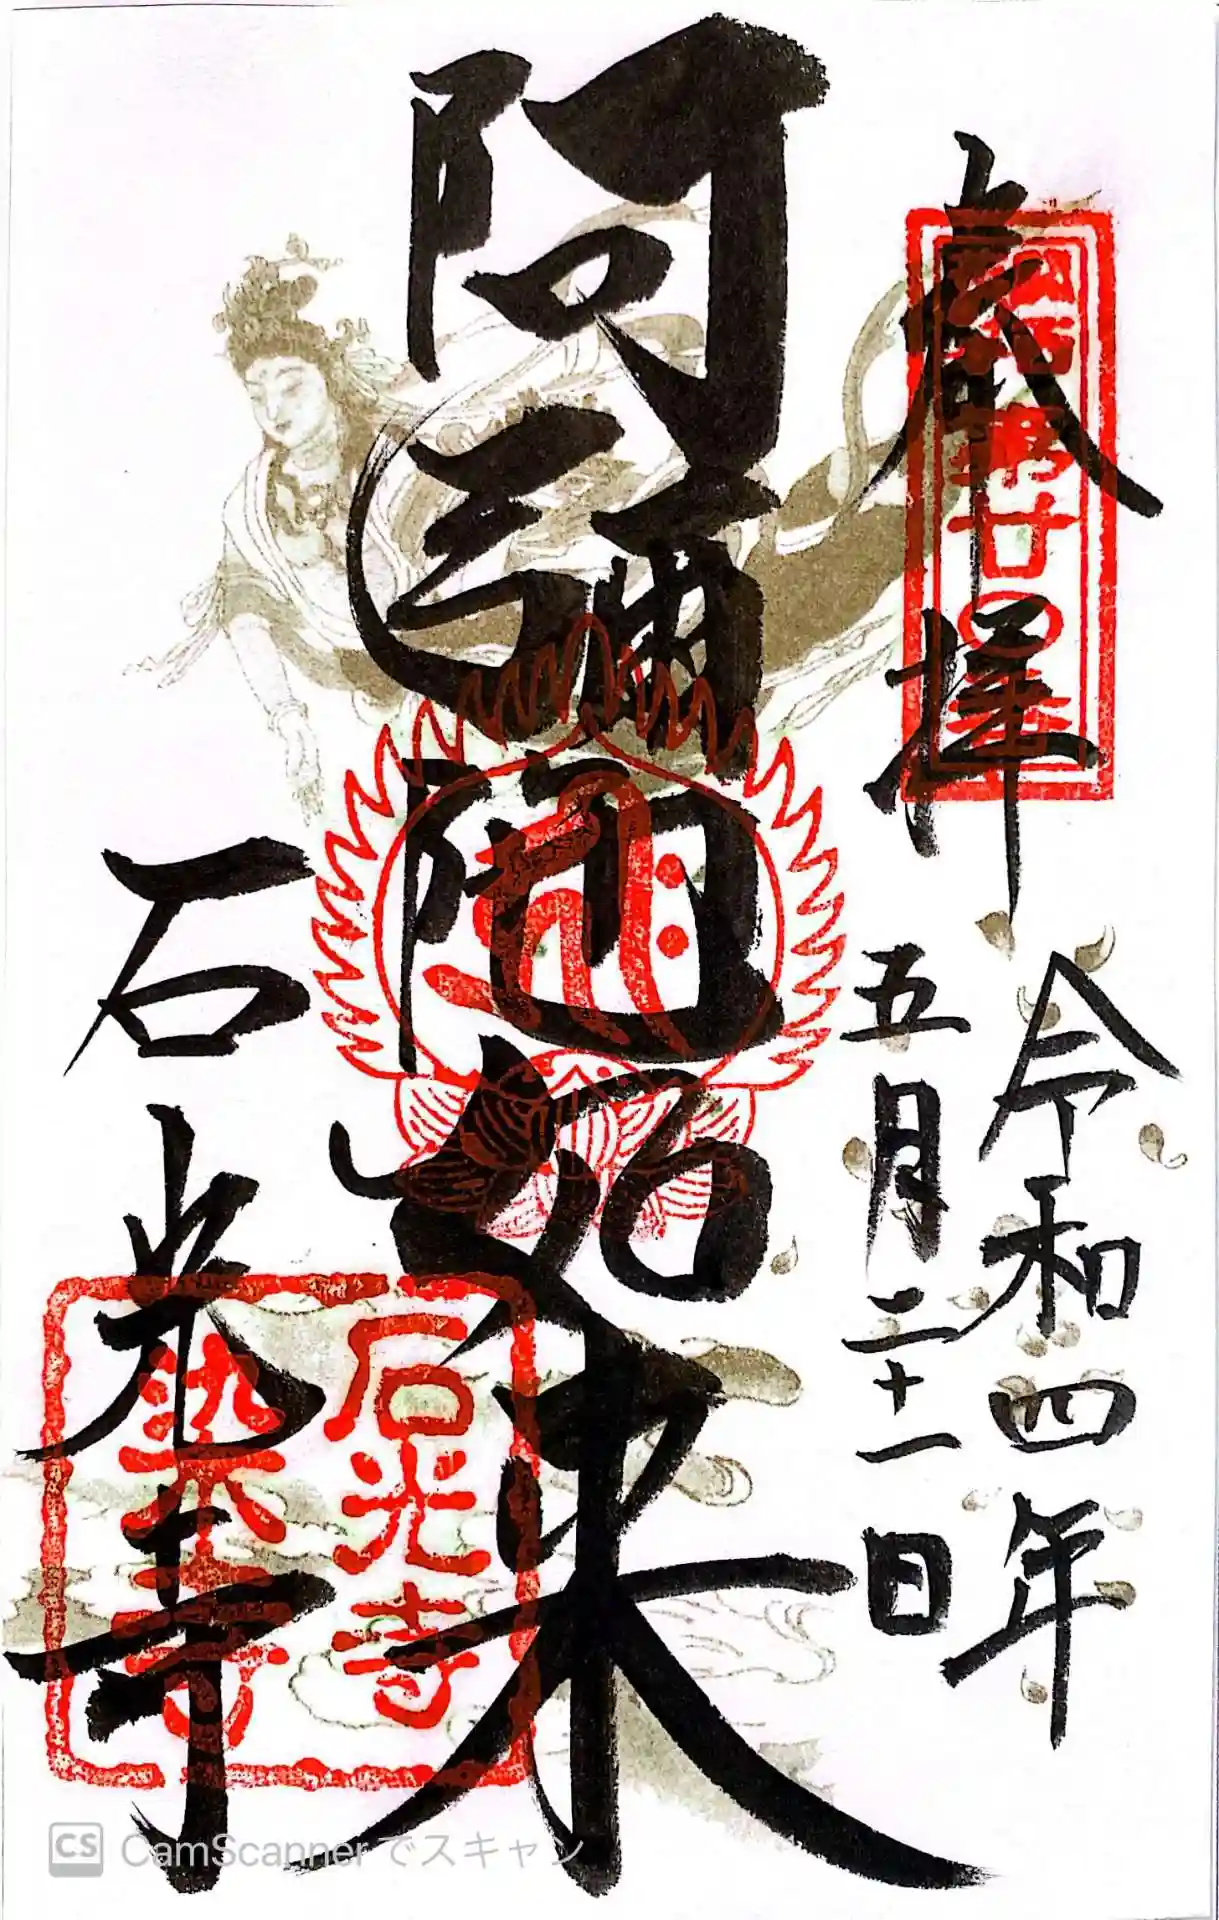 奉拝
令和四年
五月二十一日
阿彌陀如来
石光寺
石光寺
染寺
CamScannerでスキャン